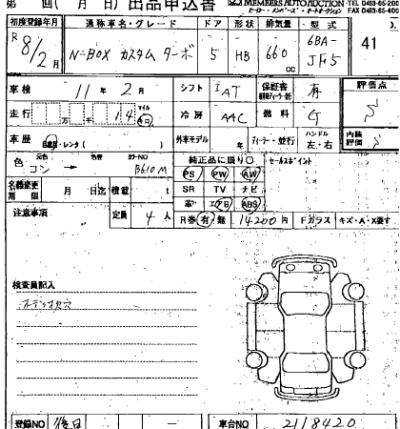 第 回( 月 日) 出品申込書 MEMBERS AUTO AUCTION TEL 0483-65-200
FAX 0483-65-400
初度登録年月 通称車名・グレード ドア 形状 排気量 型式
R 8/2月 N-BOX カスタム ターボ 5 HB 660 cc 6BA-JF5 41
車検 11年 2月 シフト IAT 保証書 有 評価点
走行 万 千 14 マイル 冷房 AAC 燃料 G
車歴 自家用・レンタ( ) 外車モデル 年 ディーラー・並行 ハンドル 左・右 内装評価
色 元色 コン → 色替 カラーNO B610M 純正品に限り○ セールスポイント
PS PW AW
名義変更期限 月 日迄 積載 t SR TV ナビ
革 エアB ABS
注意事項 定員 4人 R券 有 無 14200円 Fガラス キズ・A・X要す
検査員記入
登録NO 後日 - 車台NO 2118420